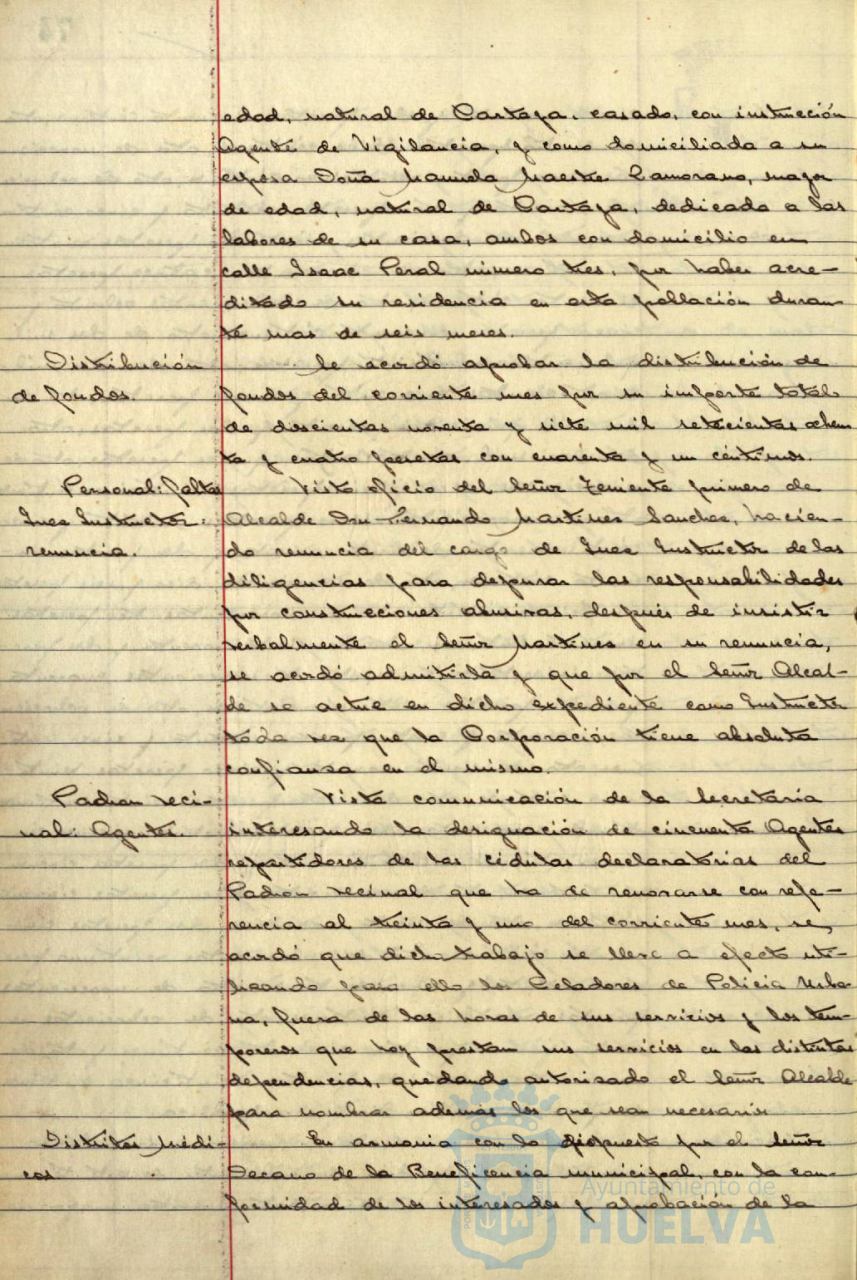 edad, natural de Cartaya, casado, con instrucción
Agente de Vigilancia, y como domiciliada a su
esposa Doña Manuela Maestre Zamorano, mayor
de edad, natural de Cartaya, dedicada a las
labores de su casa, ambos con domicilio en
calle Isaac Peral número tres, por haber acre-
ditado su residencia en esta población duran-
te mas de seis meses.
Distribución
de fondos.
Se acordó aprobar la distribución de
fondos del corriente mes por su importe total
de doscientas noventa y siete mil setecientas ochen
ta y cuatro pesetas con cuarenta y un céntimos.
Personal: faltas
Juez Instructor:
renuncia.
Visto oficio del Señor Teniente primero de
Alcalde Don Fernando Martinez Sanchez, hacien-
do renuncia del cargo de Juez Instructor de las
diligencias para depurar las responsabilidades
por construcciones abusivas, después de insistir
verbalmente el Señor Martinez en su renuncia,
se acordó admitirla y que por el Señor Alcal-
de se actue en dicho expediente como Instructor
toda vez que la Corporación tiene absoluta
confianza en el mismo.
Padron veci-
nal: Agentes.
Vista comunicación de la Secretaria
interesando la designación de cincuenta Agentes
repartidores de las cédulas declaratorias del
Padron vecinal que ha de renovarse con refe-
rencia al treinta y uno del corriente mes, se
acordó que dicho trabajo se lleve a efecto uti-
lizando para ello los Celadores de Policia Urba-
na, fuera de las horas de sus servicios y los tem-
poreros que hoy prestan sus servicios en las distintas
dependencias, quedando autorizado el Señor Alcalde
para nombrar además los que sean necesarios
Distritos médi-
cos
En armonia con lo dispuesto por el Señor
Decano de la Beneficencia municipal, con la con-
formidad de los interesados y aprobación de la
Ayuntamiento de
HUELVA